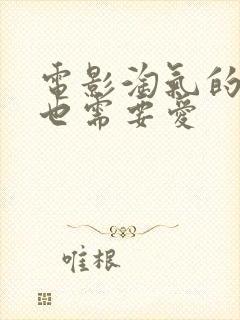 電影淘氣的
也需要愛
唯根